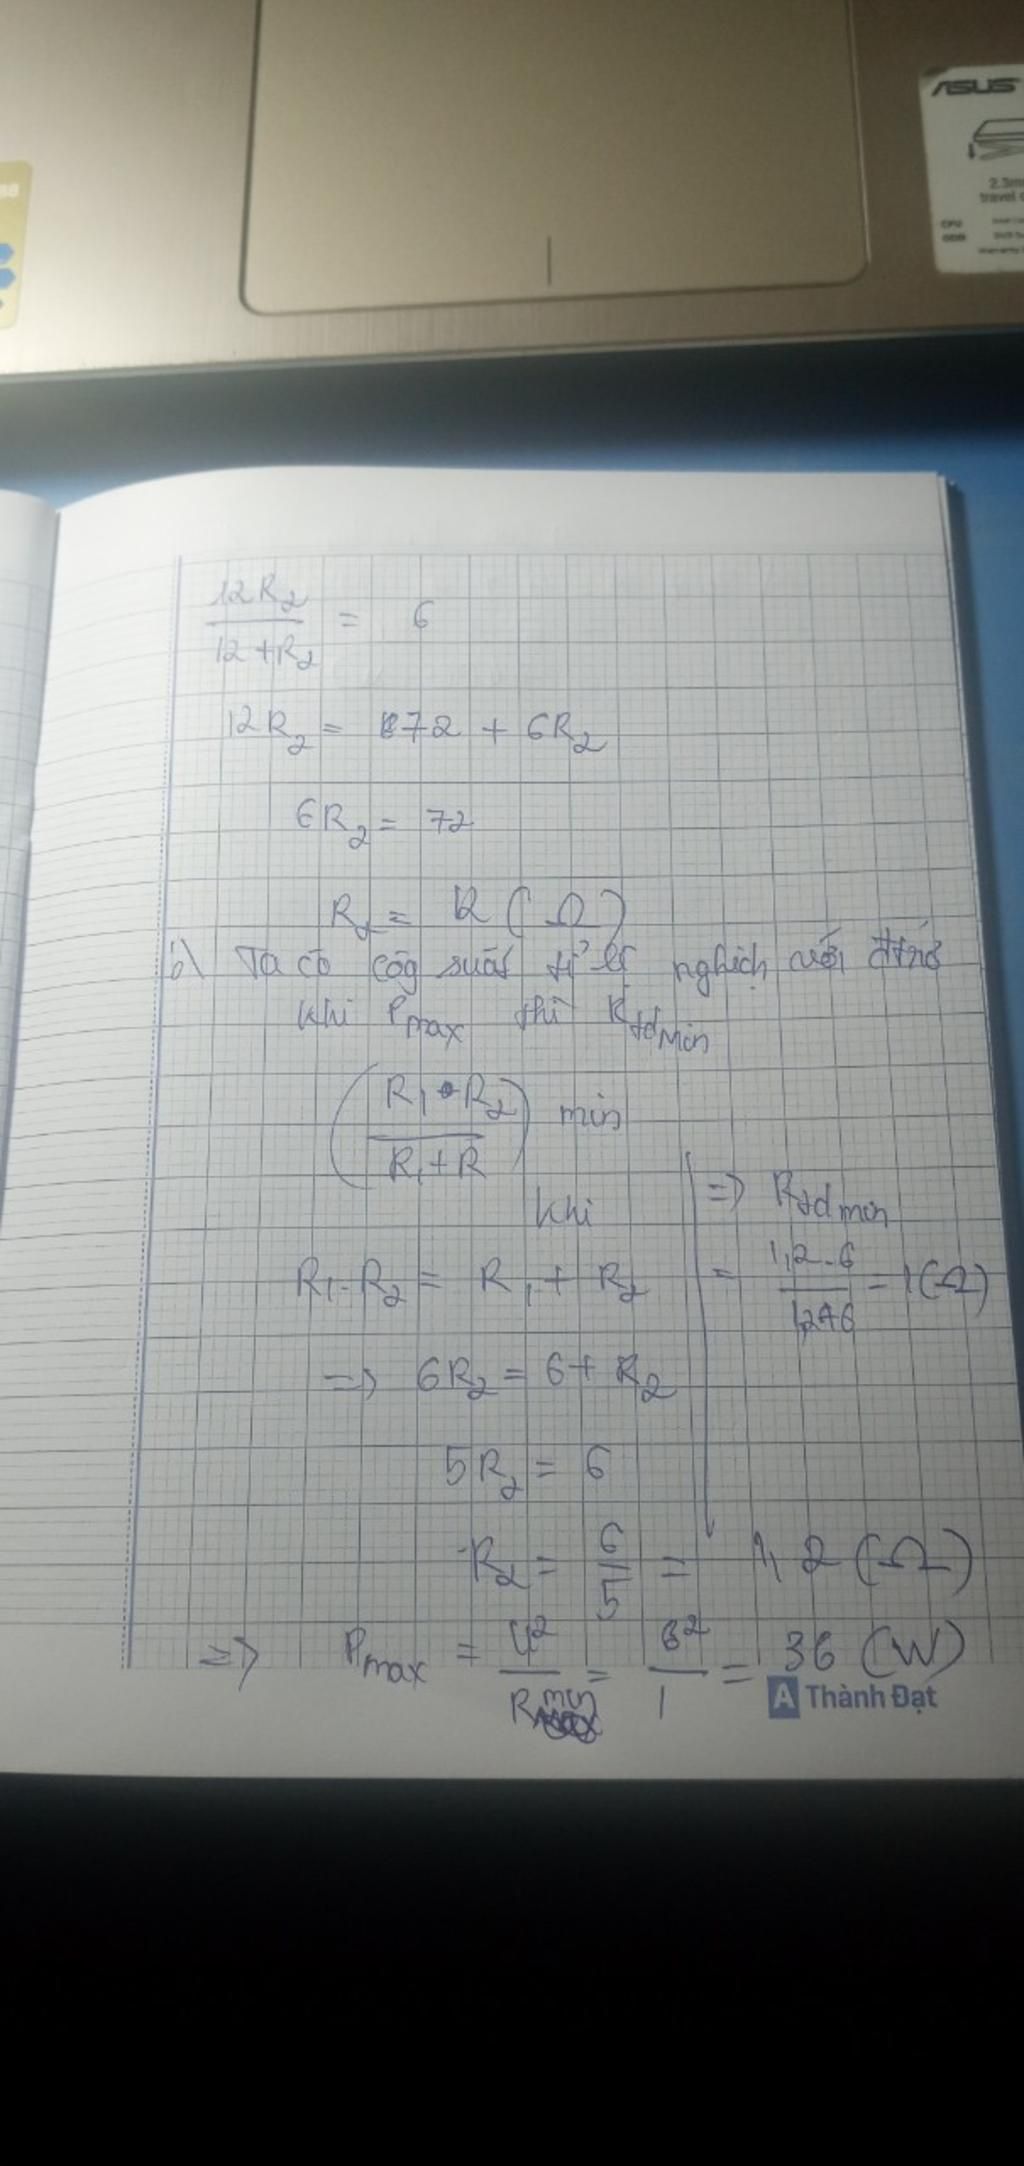 ASUS
2.3m
travel
CPU
ODD
88
12R₂/(12+R₂) = 6
12R₂ = 72 + 6R₂
6R₂ = 72
R₂ = 12 (Ω)
b) Ta có công suất tỉ lệ nghịch với đtrở
khi Pmax thì Rtđmin
(R₁.R₂/(R₁+R)) min
khi
R₁.R₂ = R₁ + R₂
=> 6R₂ = 6 + R₂
5R₂ = 6
R₂ = 6/5 = 1,2 (Ω)
=> Rtđmin
= 1,2.6/(1,2+6) = 1 (Ω)
=> Pmax = U²/Rmin = 6²/1 = 36 (W)
A Thành Đạt